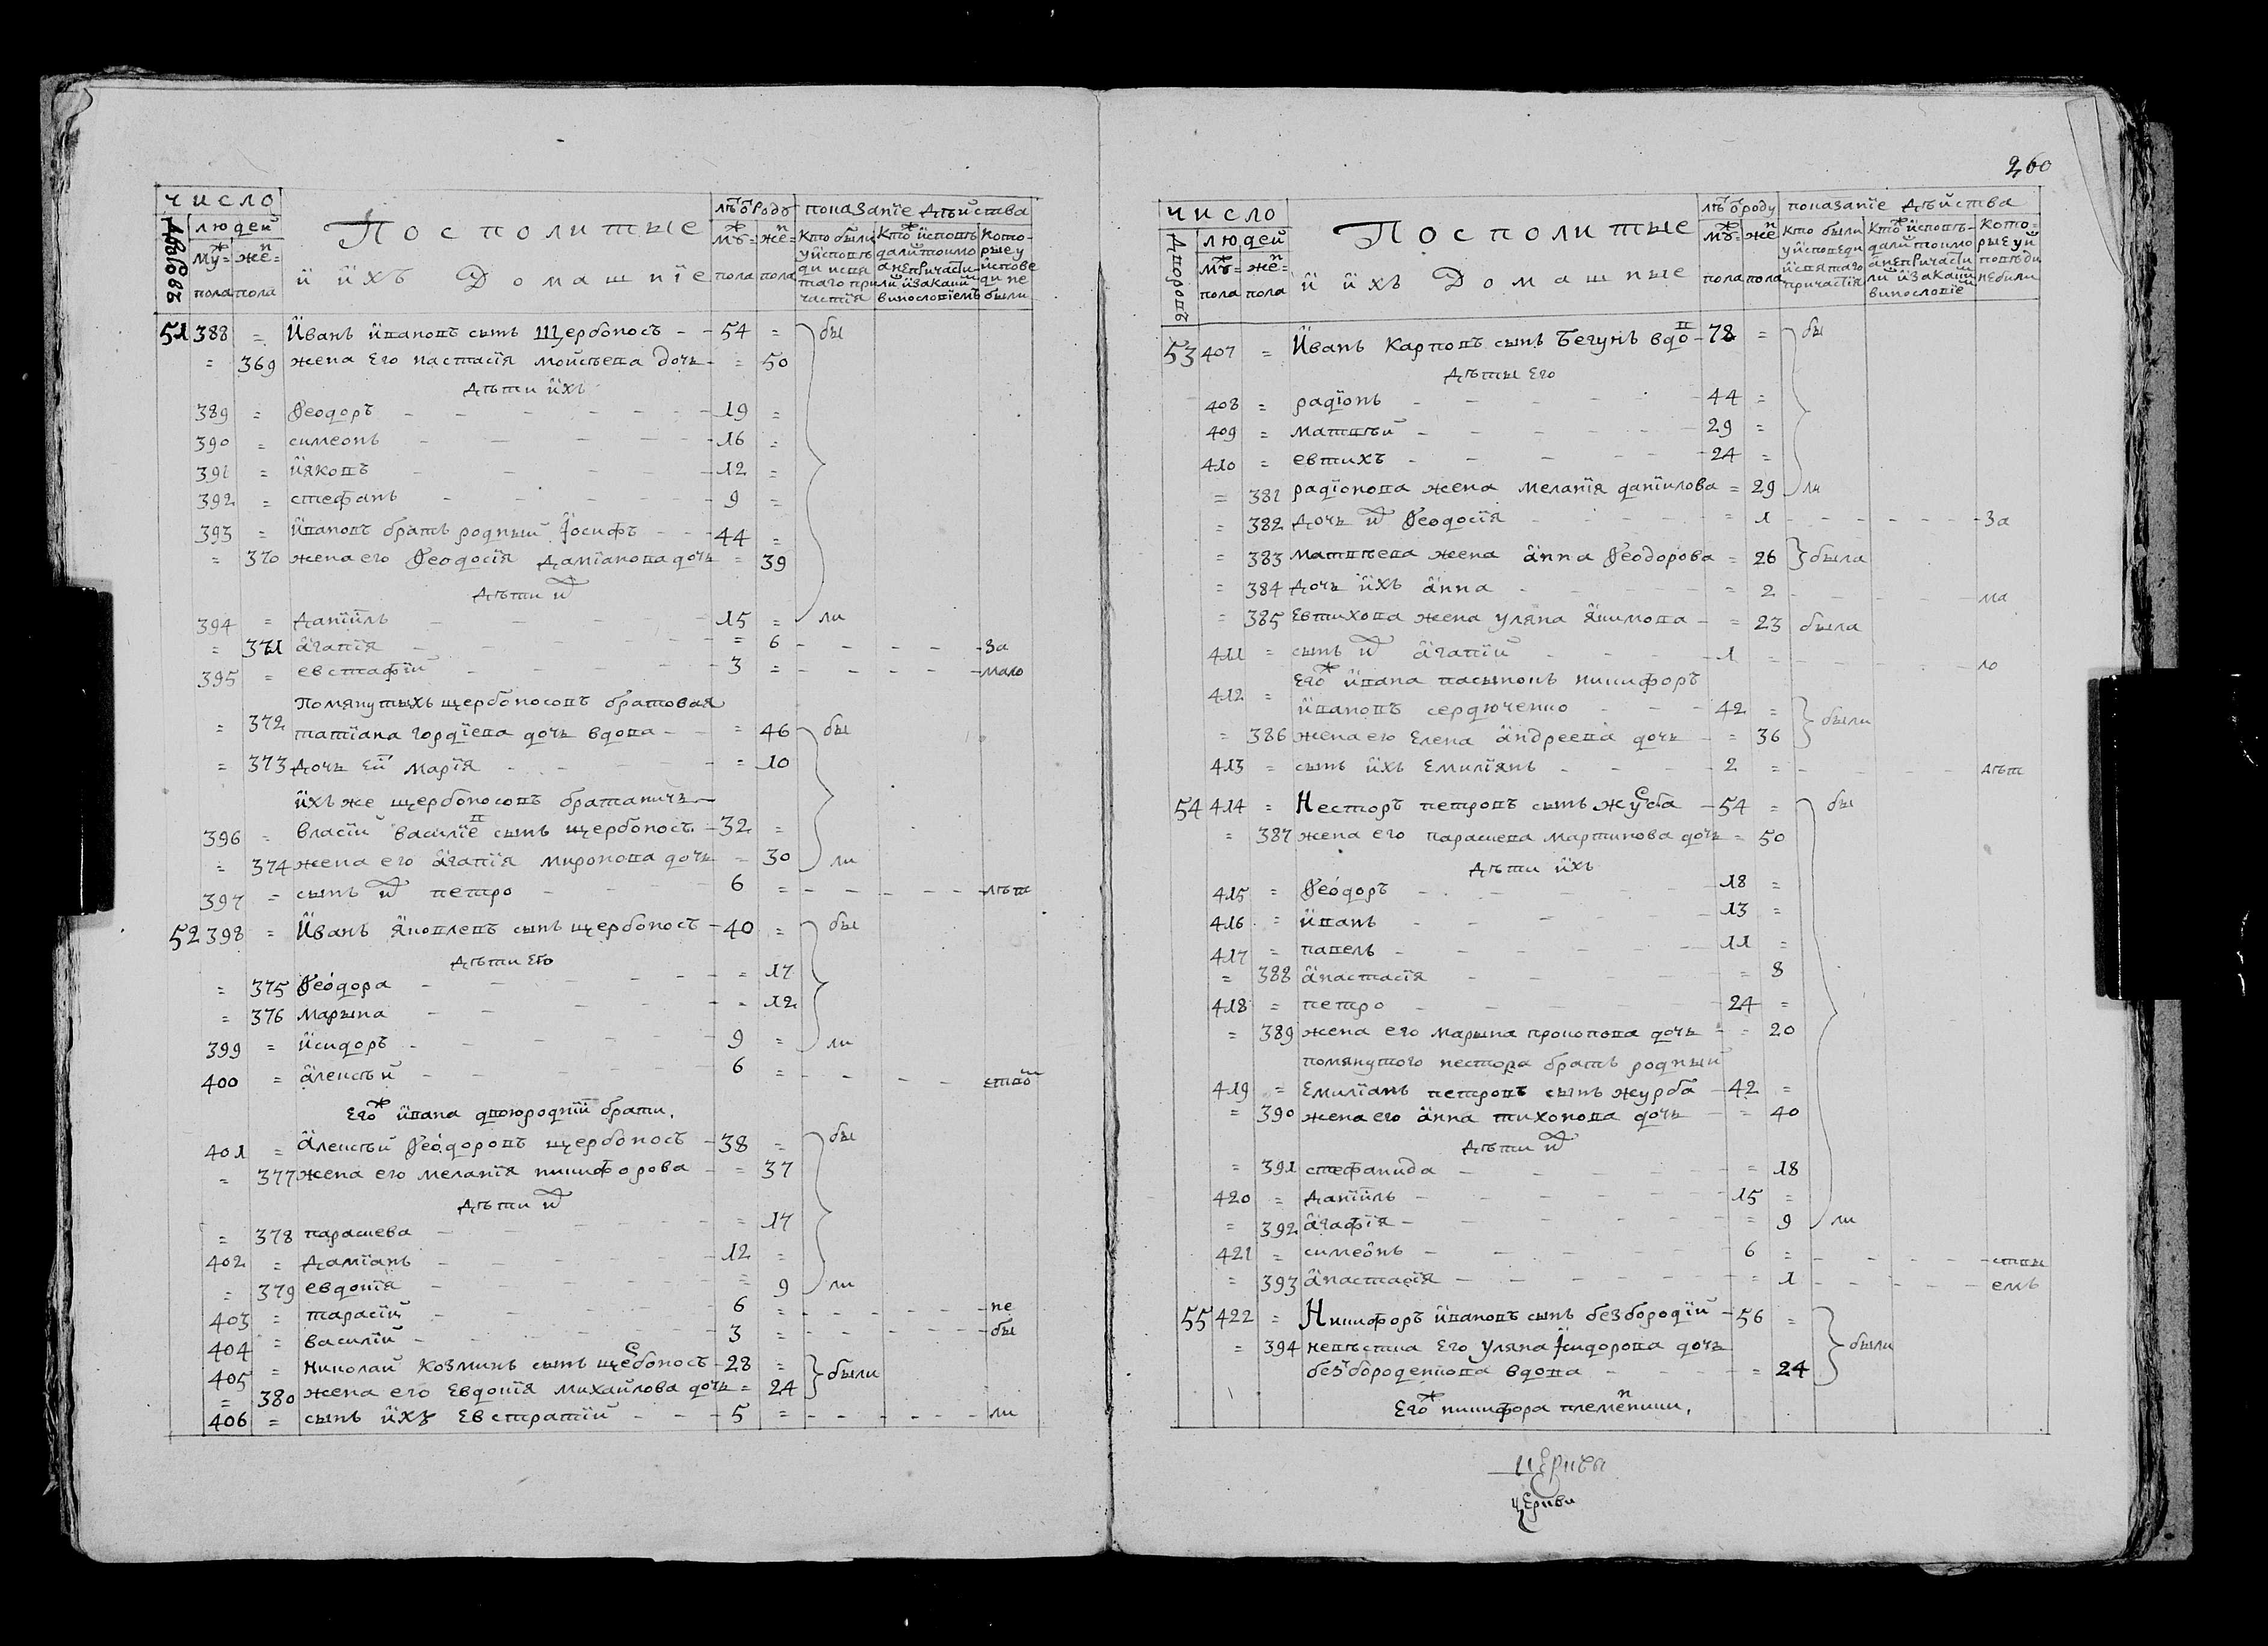 260
число
Дворовъ
людей
муж= пола
жен= пола
Посполитые
й йхъ Домашніе
лѣтъ ѿ роду
муж= пола
жен= пола
показаніе дѣйства
51 388 = Йванъ йвановъ сынъ Щербоносъ - - 54 = бы
= 369 жена его настасія мойсѣева дочь - = 50
дѣти йхъ
389 = Ѳеодоръ - 19 =
390 = симеонъ - 16 =
391 = йяковъ - 12 =
392 = стефанъ - 9 =
393 = йвановъ братъ родный Іосифъ - - 44 =
= 370 жена его Ѳеодосія даміанова дочь = 39
дѣти йхъ
394 = даніилъ - 15 = ли
= 371 агапія - = 6 - за
395 = евстафій - 3 = - мало
помянутыхъ щербоносовъ братовая
= 372 татіана гордіева дочь вдова - - = 46 бы
= 373 дочь ей марія - = 10
йхъ же щербоносовъ братаничъ
396 = власій василіев сынъ щербоносъ - 32 =
= 374 жена его агапія миронова дочь = 30 ли
397 = сынъ йхъ петро - 6 = - лѣт
52 398 = Йванъ яковлевъ сынъ щербоносъ - 40 = бы
дѣти его
= 375 Ѳеодора - = 17
= 376 марына - = 12
399 = йсидоръ - 9 = ли
400 = алексѣй - 6 = -
его ж йвана двоюродній брати,
401 = алексѣй Ѳеодоровъ щербоносъ - 38 = бы
= 377 жена его меланія никифорова - = 37
дѣти йхъ
= 378 параскева - = 17
402 = даміанъ - 12 =
= 379 евдокія - = 9 ли
403 = тарасій - 6 = - не
404 = василій - 3 = - бы
405 = николай козминъ сынъ щербоносъ - 28 = были
= 380 жена его евдокія михайлова дочь = 24
406 = сынъ йхъ евстратій - - - 5 = - ли
число
Дворовъ
людей
муж= пола
жен= пола
Посполитые
й йхъ Домашные
лѣтъ ѿ роду
муж= пола
жен пола
показаніе дѣйства
53 407 = Йванъ карповъ сынъ бегунъ вдов - 78 = бы
дѣты его
408 = радіонъ - 44 =
409 = матвѣй - 29 =
410 = евтихъ - 24 =
= 381 радіонова жена меланія даніилова = 29 ли
= 382 дочь йхъ Ѳеодосія - = 1 - за
= 383 матвѣева жена анна Ѳеодорова = 26 была
= 384 дочь йхъ анна - = 2 - ма
= 385 евтихова жена уляна якимова - = 23 была
411 = сынъ йхъ агапій - 1 = - ло
его ж йвана пасынокъ никифоръ
412 = йвановъ сердюченко - 42 = были
= 386 жена его елена андреева дочь - = 36
413 = сынъ йхъ емиліянъ - 2 = - лѣт
54 414 = Несторъ петровъ сынъ журба - 54 = бы
= 387 жена его параскева мартинова дочь = 50
дѣти йхъ
415 = Ѳеодоръ - 18 =
416 = йванъ - 13 =
417 = павелъ - 11 =
= 388 анастасія - = 8
418 = петро - 24 =
= 389 жена его марына прокопова дочь - = 20
помянутого нестора братъ родный
419 = емиліанъ петровъ сынъ журба - 42 =
= 390 жена его анна тихонова дочь - = 40
дѣти йхъ
= 391 стефанида - = 18
420 = даніилъ - 15 =
= 392 агафія - = 9 ли
421 = симеонъ - 6 = - ствы
= 393 анастасія - = 1 - емъ
55 422 = Никифоръ йвановъ сынъ безбородій - 56 = были
= 394 невѣстка его уляна йсидорова дочь
безбороденкова вдова - = 24
его ж никифора племенники,
церкви
церкви